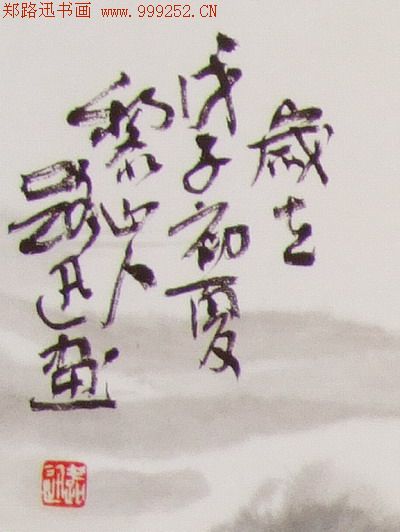 郑路迅书画 www.999252.CN
歲在
戊子初夏
黎山人
路迅畫